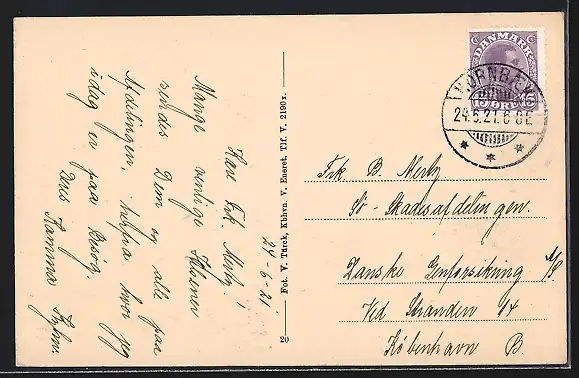 24-6-21
Kære Frk. Mertz!
Mange venlige Hilsener
sendes Dem og alle paa
Afdelingen, herfra, hvor jeg
idag er paa Besøg.
Deres Kamma
Fot. V. Türck, Kbhvn. V. Eneret. Tlf. V. 2190 x.
20
DANMARK
15 ØRE 15
HORNBÆK
24.6.21. 6-8 E
Frk B. Mertz
Sø-Skadesafdelingen.
Danske Genforsikring A/S
Ved Stranden 14
København B.